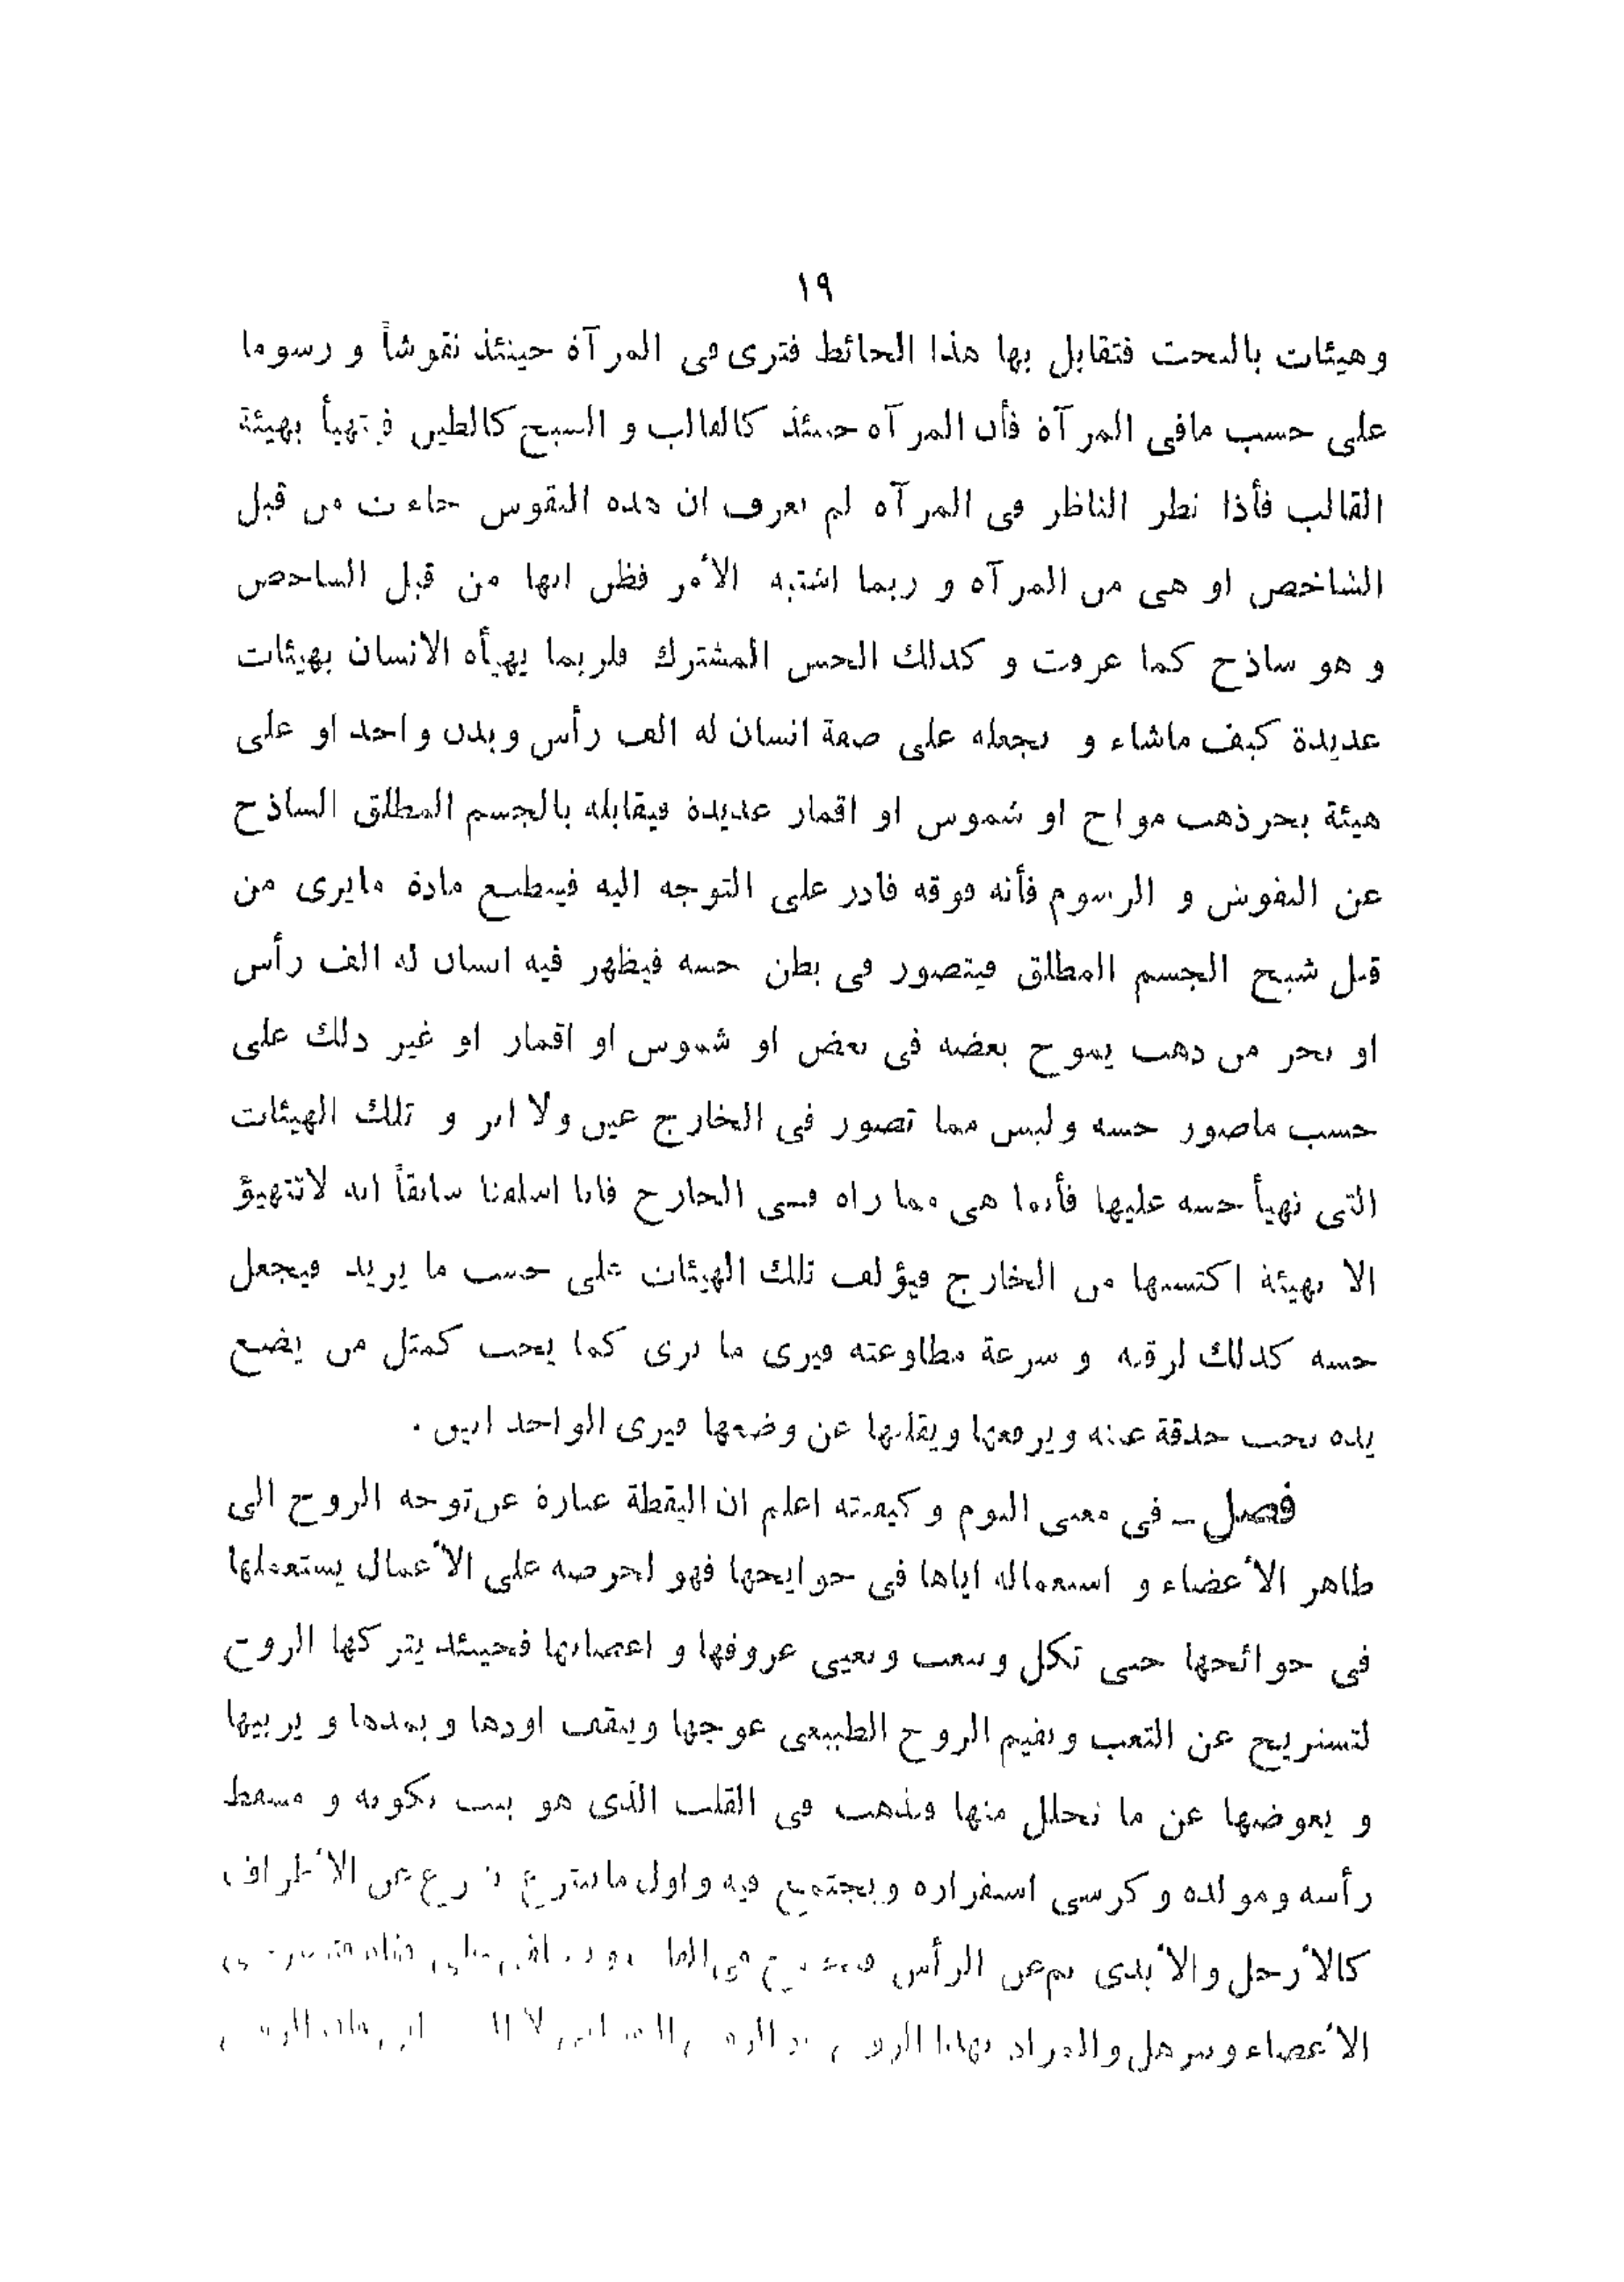 ١٩
وهيئات بالنحت فتقابل بها هذا الحائط فترى فى المرآة حينئذ نقوشاً و رسوما
على حسب مافى المرآة فأن المرآة حينئذ كالقالب و الشبح كالطين فيتهيأ بهيئة
القالب فأذا نظر الناظر فى المرآة لم يعرف ان هذه النقوش جاءت من قبل
الشاخص او هى من المرآة و ربما اشتبه الأمر فظن انها من قبل الشاخص
و هو ساذج كما عرفت و كذلك الحس المشترك فلربما يهيأه الانسان بهيئات
عديدة كيف ماشاء و يجعله على صفة انسان له الف رأس وبدن واحد او على
هيئة بحرذهب مواج او شموس او اقمار عديدة فيقابله بالجسم المطلق الساذج
عن النقوش و الرسوم فأنه فوقه قادر على التوجه اليه فينطبع مادة مايرى من
قبل شبح الجسم المطلق فيتصور فى بطن حسه فيظهر فيه انسان له الف رأس
او بحر من ذهب يموج بعضه فى بعض او شموس او اقمار او غير ذلك على
حسب ماصور حسه وليس مما تصور فى الخارج عين ولا اثر و تلك الهيئات
التى تهيأ حسه عليها فأنما هى مما راه فى الخارج فانا اسلفنا سابقاً انه لاتتهيؤ
الا بهيئة اكتسبها من الخارج فيؤلف تلك الهيئات على حسب ما يريد فيجعل
حسه كذلك لرقته و سرعة مطاوعته فيرى ما يرى كما يحب كمثل من يضع
يده تحت حدقة عينه ويرفعها ويقلبها عن وضعها فيرى الواحد اثنين .
فصل ـ فى معنى النوم و كيفيته اعلم ان اليقظة عبارة عن توجه الروح الى
ظاهر الأعضاء و استعماله اياها فى حوايجها فهو لحرصه على الأعمال يستعملها
فى حوائجها حتى تكل وتتعب وتعيى عروقها و اعصابها فحينئذ يتركها الروح
لتستريح عن التعب ويقيم الروح الطبيعى عوجها ويثقف اودها ويمدها و يربيها
و يعوضها عن ما تحلل منها فيذهب فى القلب الذى هو بيت تكونه و مسقط
رأسه ومولده و كرسى استقراره ويجتمع فيه واول ما عن الأطراف
كالأرجل والأيدى ثم عن الرأس فى
الأعضاء والمراد بهذا الروح